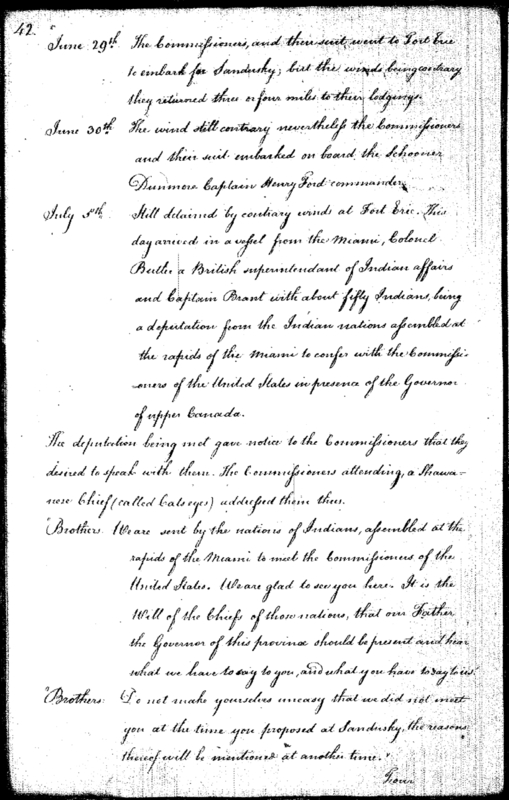 42.
"June 29th. The Commissioners, and their suit went to Fort Erie
to embark for Sandusky; but the winds being contrary
they returned three or four miles to their lodgings.
June 30th. The wind still contrary nevertheless the Commissioners
and their suit embarked on board the Schooner
Dunmore Captain Henry Ford commander,
July 5th. Still detained by contrary winds at Fort Erie. This
day arrived in a vessel from the Miami, Colonel
Butler a British superintendant of Indian affairs
and Captain Brant with about fifty Indians, being
a deputation from the Indian nations assembled at
the rapids of the Miami to confer with the Commissi-
oners of the United States in presence of the Governor
of upper Canada.
The deputation being met gave notice to the Commissioners that they
desired to speak with them. The Commissioners attending, a Shawa-
nese Chief (called Cats eyes) addressed them thus.
"Brothers. We are sent by the nations of Indians, assembled at the
rapids of the Miami to meet the Commissioners of the
United States. We are glad to see you here. It is the
Will of the Chiefs of those nations, that our Father
the Governor of this province should be present and hear
what we have to say to you, and what you have to say to us.
"Brothers: Do not make yourselves uneasy that we did not meet
you at the time you proposed at Sandusky, the reasons
thereof will be mentioned at another time."